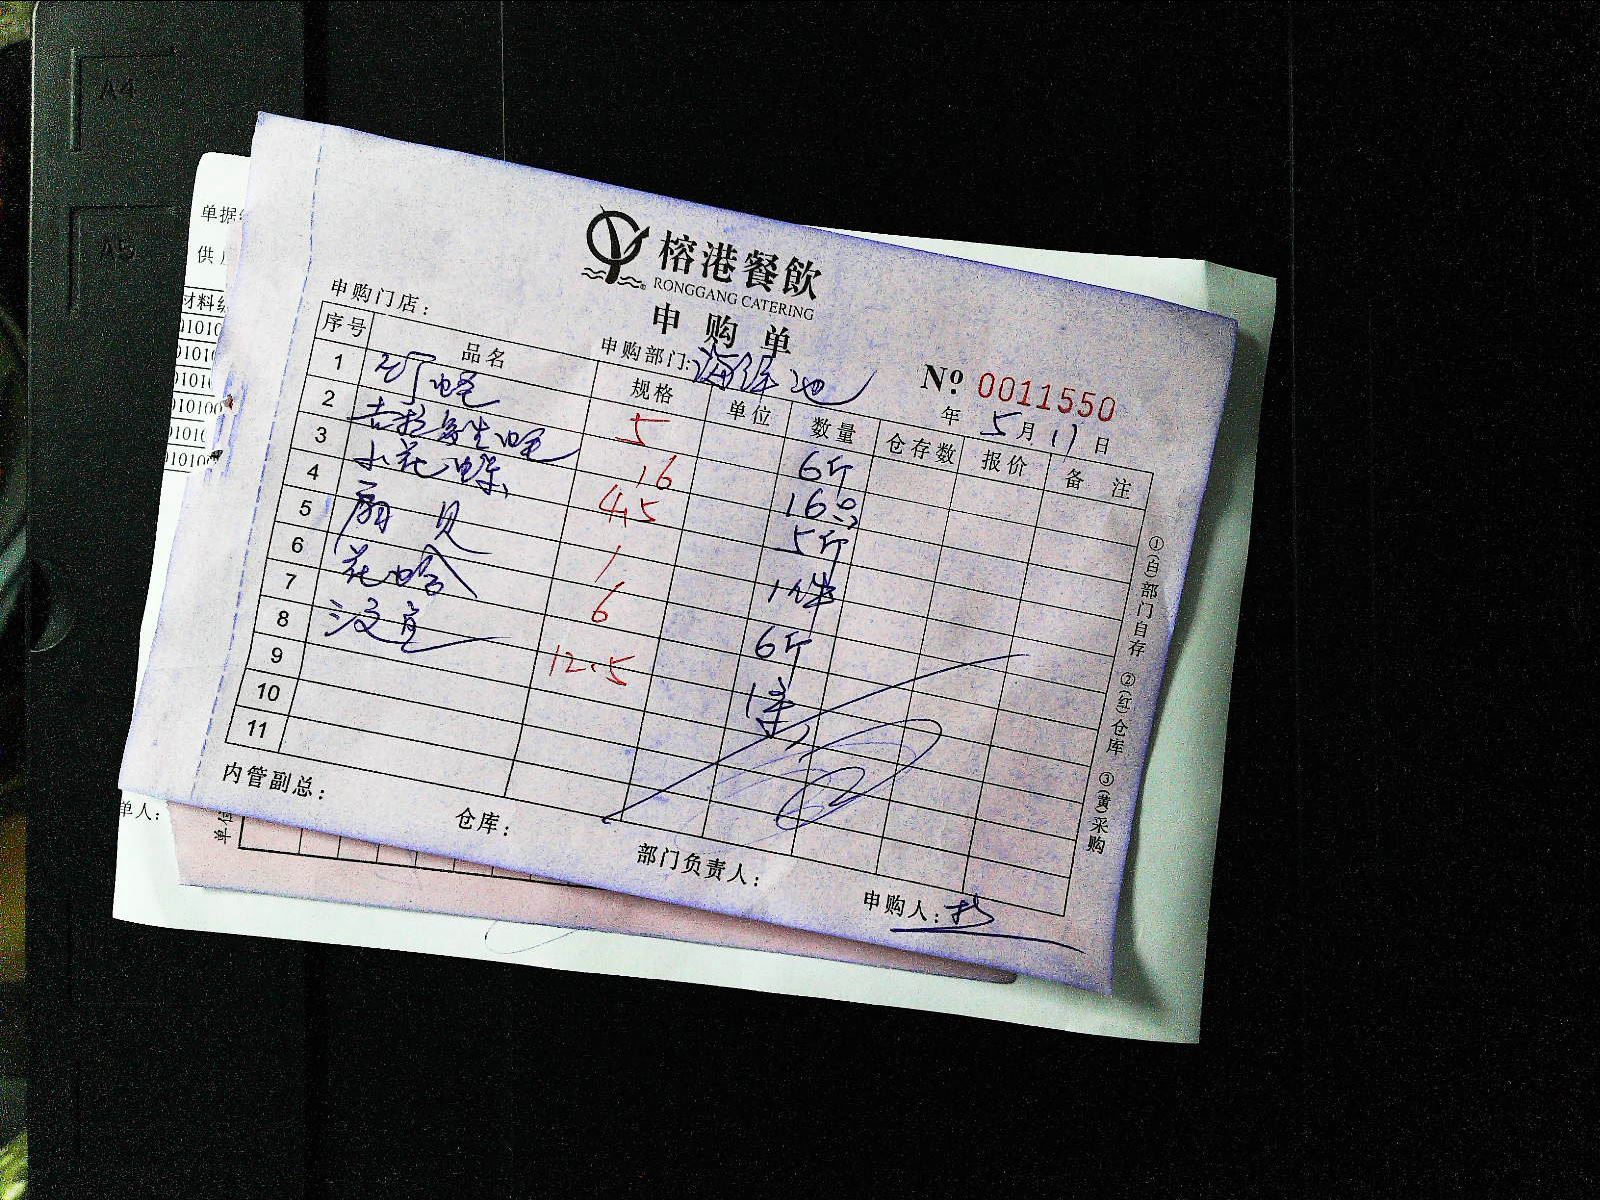 A4
A5
单据
供
材料
榕港餐飲
RONGGANG CATERING
申购单
申购门店:
申购部门:海鲜池
№ 0011550
年 5月17日
序号 品名 规格 单位 数量 仓存数 报价 备注
1 5 6斤
2 吉拉多生蚝 16 16只
3 小花螺 4.5 5斤
4 扇贝 1 1件
5 花蛤 6 6斤
6 12.5 1条
7
8
9
10
11
内管副总:
仓库:
部门负责人:
申购人:
①(白)部门自存 ②(红)仓库 ③(黄)采购
单人: